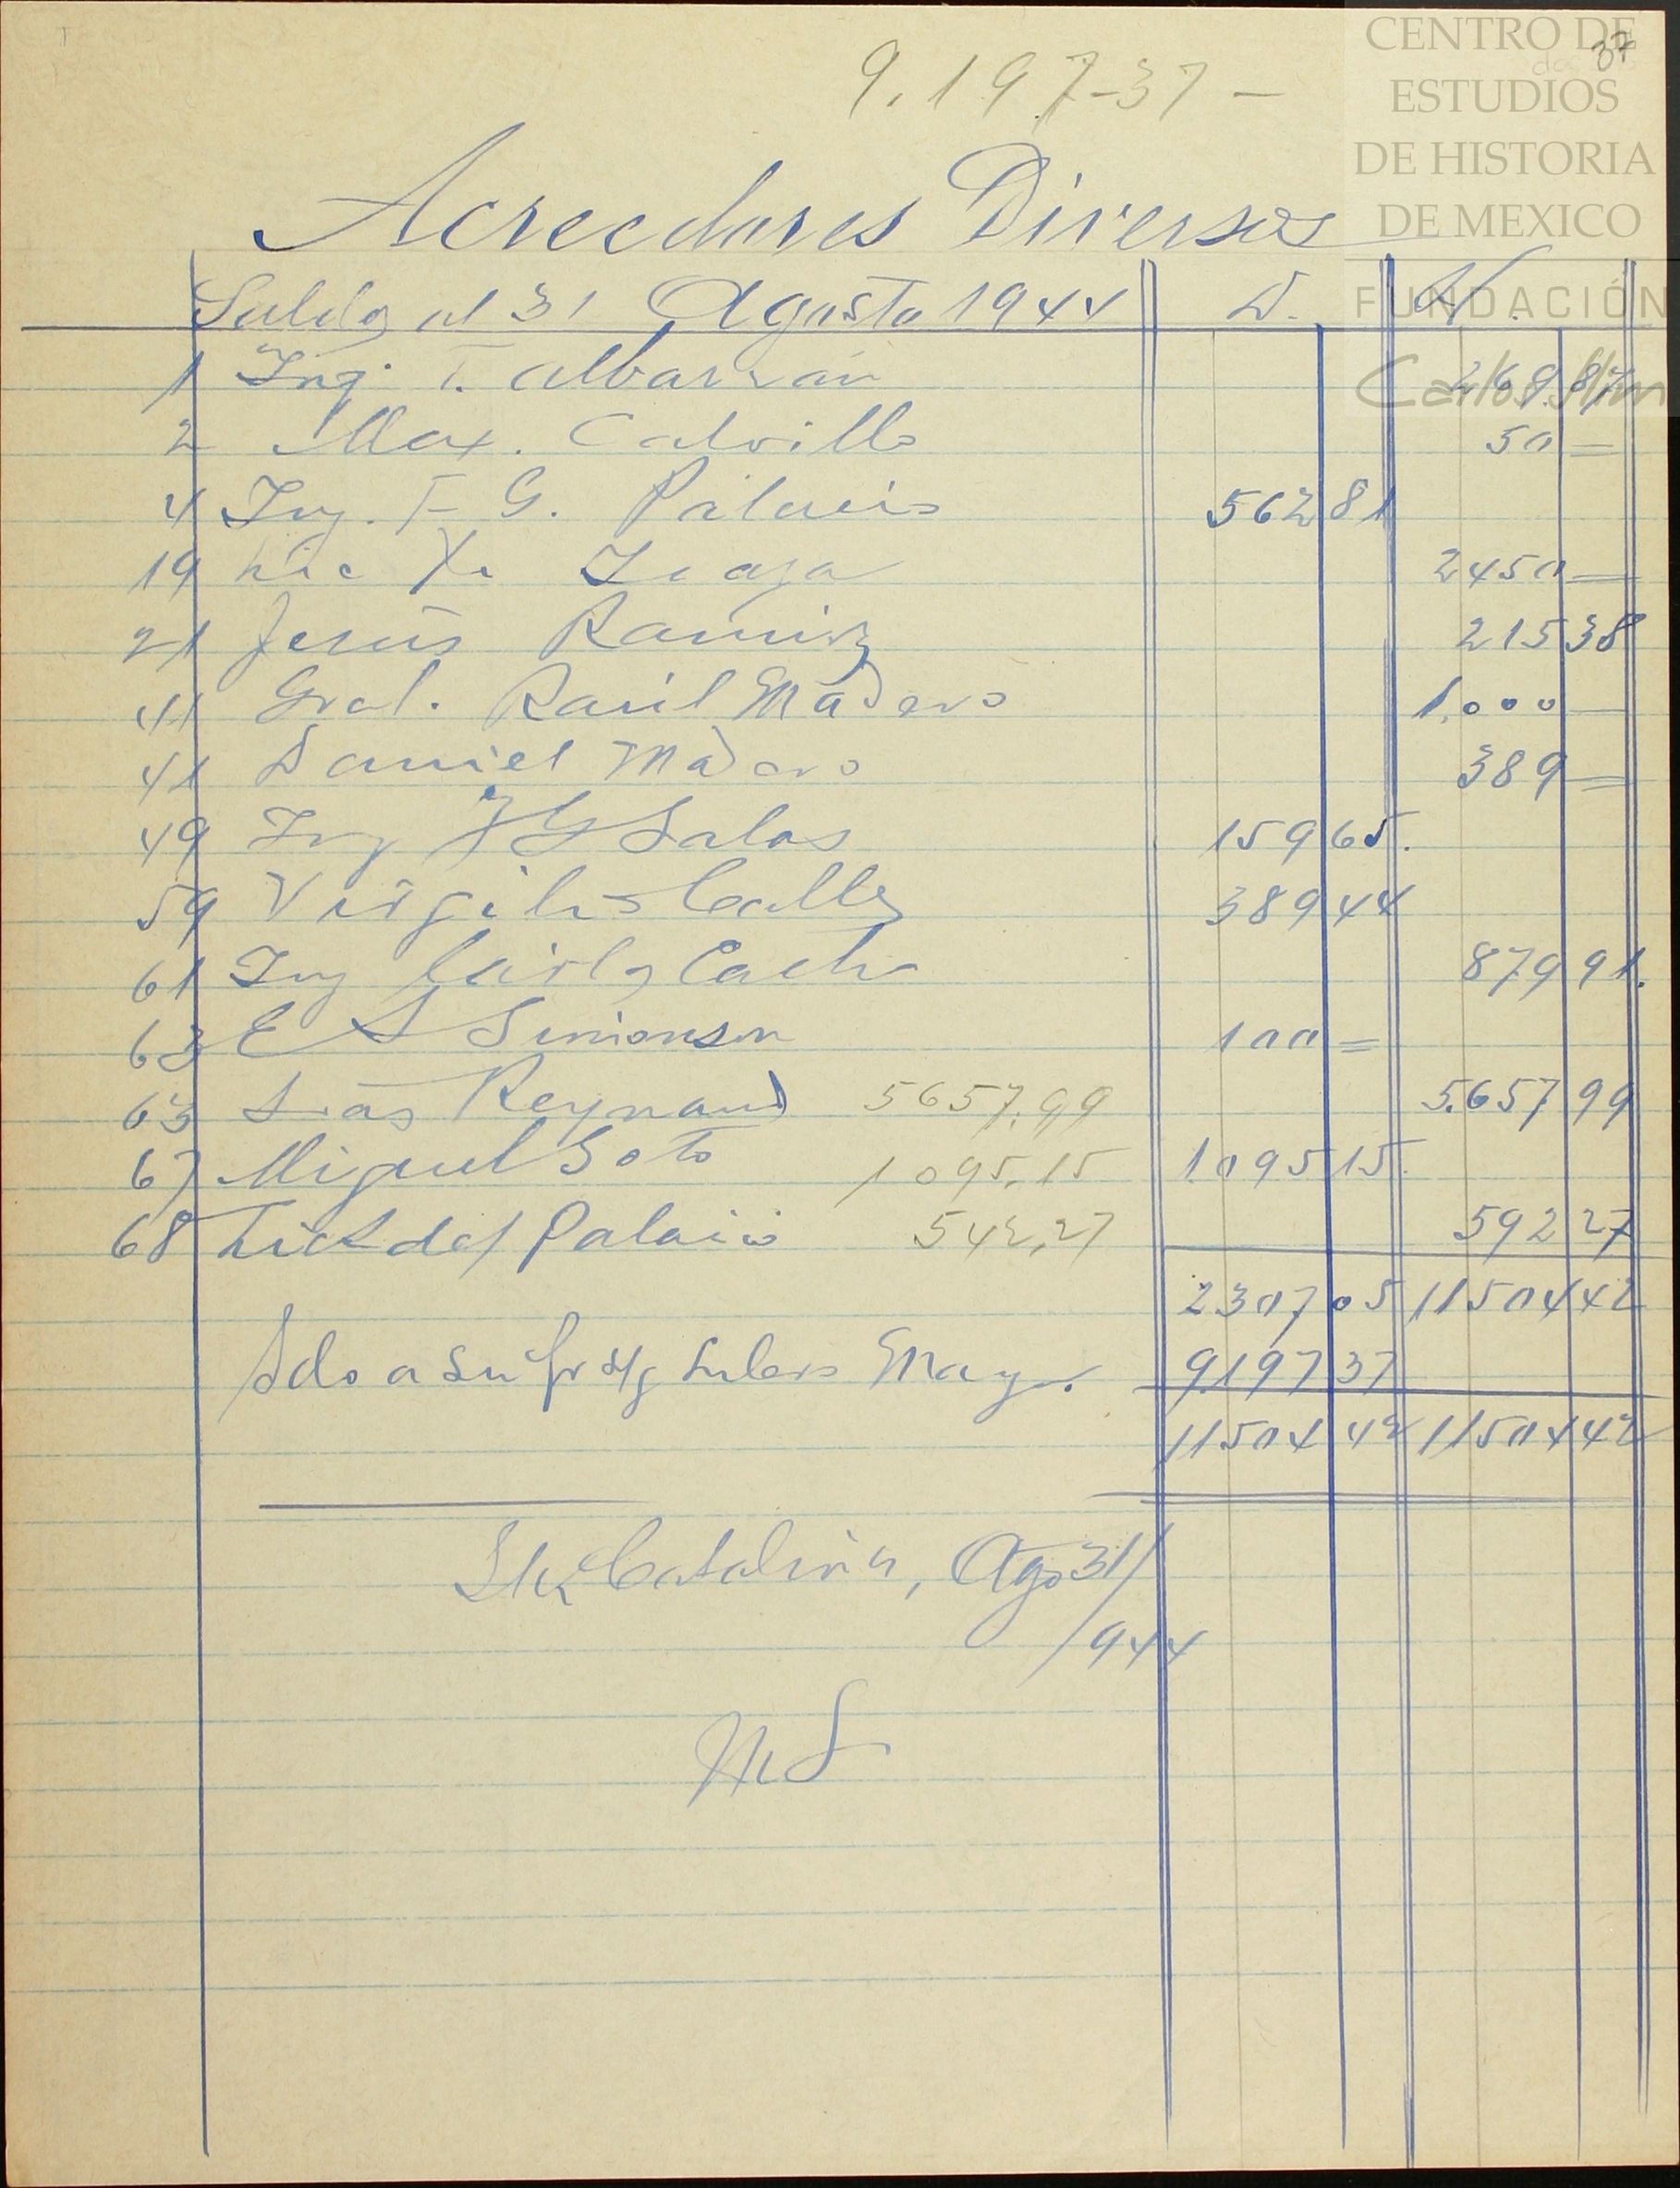 CENTRO DE
ESTUDIOS
DE HISTORIA
DE MEXICO
FUNDACIÓN
Carlos Slim
37
9.197-37 -
Acreedores Diversos
Saldos al 31 Agosto 1944 D. H.
1 Ing. F. Albarrán 269 87
2 Max. Calvillo 50 =
4 Ing. F G. Palacio 562 81
19 Lic 2450 =
21 Jesús Ramirez 215 38
41 Gral. Raúl Madero 1.000 —
41 Daniel Madero 389 =
49 Ing J G Salas 159 65.
59 Virgilio Calles 389 44
61 Ing Carlos Cacho 879 91.
63 E S Simonson 100 =
63 Reynaud 5657.99 5.657 99
67 Miguel Soto 1095.15 1.095 15.
68 del Palacio 542,27 592 27
2307 05 11504 42
Sdo a su fv s/g Libro May. 9.197 37
11504 42 11504 42
Sta Catalina, Ago 31/
/944
MS